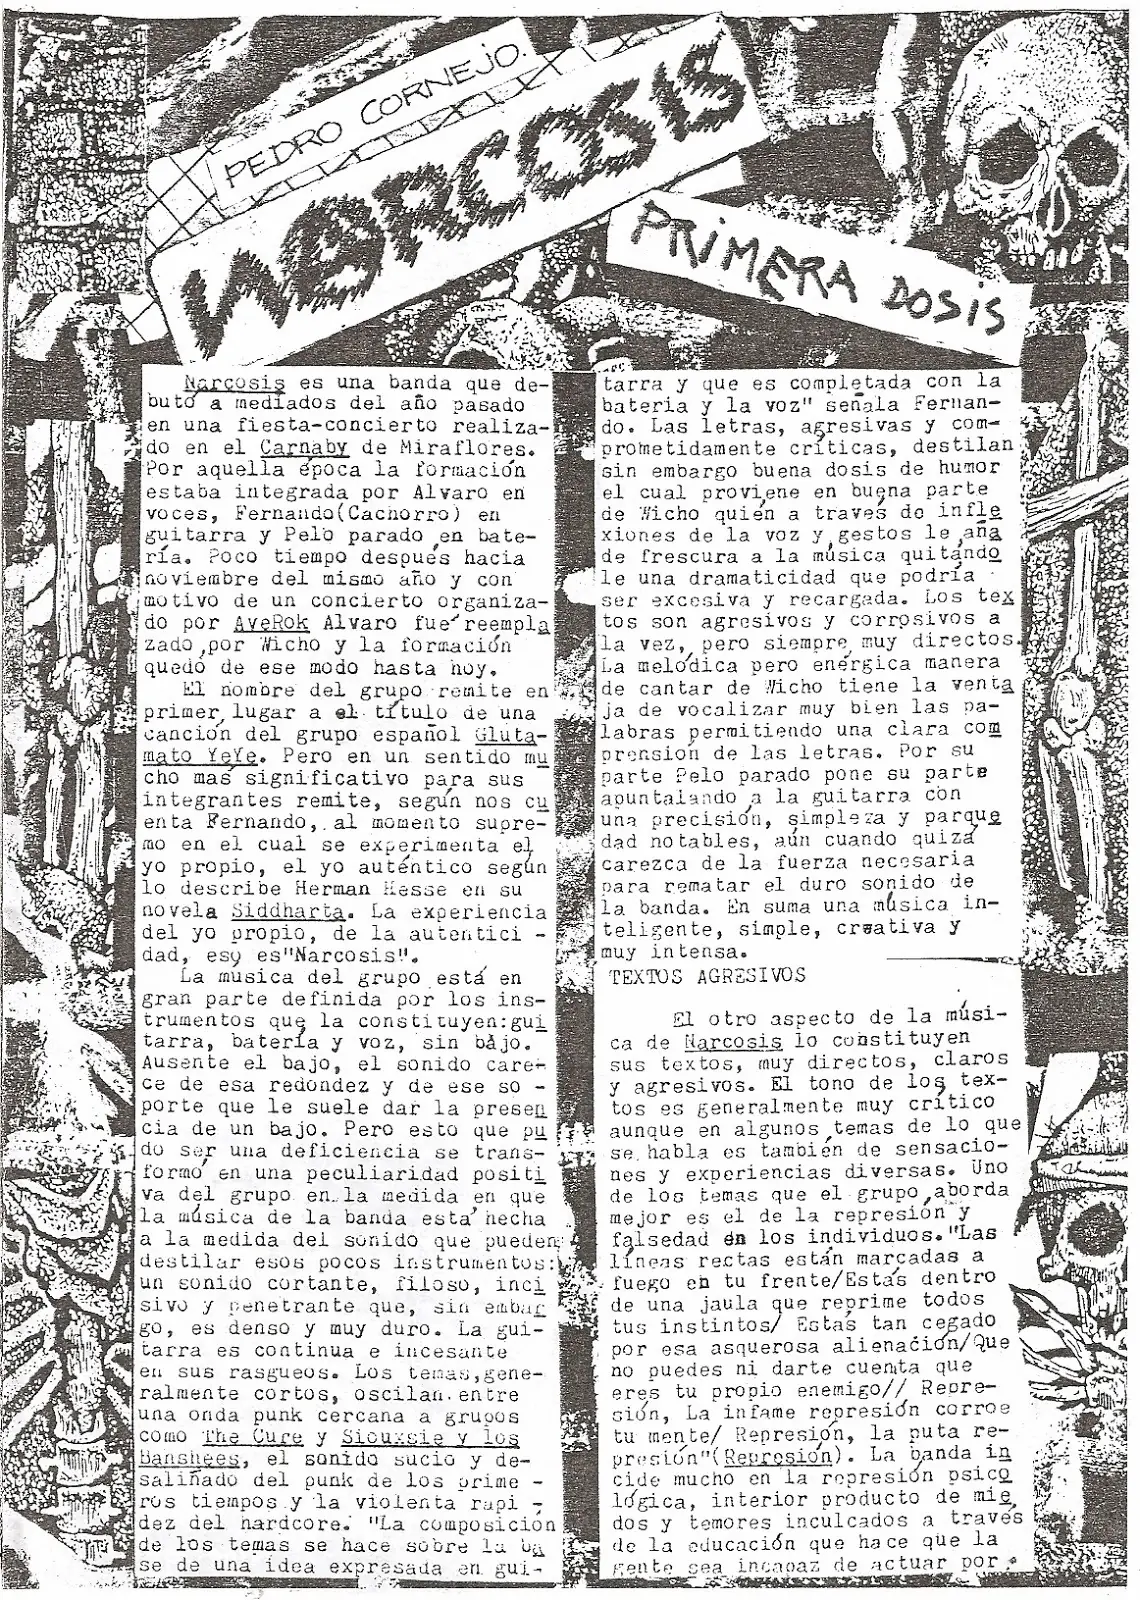 PEDRO CORNEJO.
NARCOSIS
PRIMERA DOSIS
Narcosis es una banda que de-
butó a mediados del año pasado
en una fiesta-concierto realiza-
do en el Carnaby de Miraflores.
Por aquella época la formación
estaba integrada por Alvaro en
voces, Fernando(Cachorro) en
guitarra y Pelo parado en bate-
ría. Poco tiempo después hacia
noviembre del mismo año y con
motivo de un concierto organiza-
do por AveRok Alvaro fue reempla
zado por Wicho y la formación
quedó de ese modo hasta hoy.
El nombre del grupo remite en
primer lugar a el título de una
canción del grupo español Gluta-
mato YeYe. Pero en un sentido mu
cho mas significativo para sus
integrantes remite, según nos cu
enta Fernando, al momento supre-
mo en el cual se experimenta el
yo propio, el yo auténtico según
lo describe Herman Hesse en su
novela Siddharta. La experiencia
del yo propio, de la autentici -
dad, esy es"Narcosis".
La música del grupo está en
gran parte definida por los ins-
trumentos que la constituyen:gui
tarra, batería y voz, sin bajo.
Ausente el bajo, el sonido care-
ce de esa redondez y de ese so -
porte que le suele dar la presen
cia de un bajo. Pero esto que pu
do ser una deficiencia se trans-
formó en una peculiaridad positi
va del grupo en la medida en que
la música de la banda está hecha
a la medida del sonido que pueden
destilar esos pocos instrumentos:
un sonido cortante, filoso, inci
sivo y penetrante que, sin embar
go, es denso y muy duro. La gui-
tarra es continua e incesante
en sus rasgueos. Los temas,gene-
ralmente cortos, oscilan entre
una onda punk cercana a grupos
como The Cure y Siouxsie y los
Banshees, el sonido sucio y de-
saliñado del punk de los prime -
ros tiempos y la violenta rapi -
dez del hardcore. "La composición
de los temas se hace sobre la ba
se de una idea expresada en gui-
tarra y que es completada con la
bateria y la voz" señala Fernan-
do. Las letras, agresivas y com-
prometidamente críticas, destilan
sin embargo buena dosis de humor
el cual proviene en buena parte
de Wicho quién a través de infle
xiones de la voz y gestos le aña
de frescura a la música quitándo
le una dramaticidad que podría
ser excesiva y recargada. Los tex
tos son agresivos y corrosivos a
la vez, pero siempre muy directos.
La melódica pero enérgica manera
de cantar de Wicho tiene la venta
ja de vocalizar muy bien las pa-
labras permitiendo una clara com
prensión de las letras. Por su
parte Pelo parado pone su parte
apuntalando a la guitarra con
una precisión, simpleza y parque
dad notables, aún cuando quizá
carezca de la fuerza necesaria
para rematar el duro sonido de
la banda. En suma una música in-
teligente, simple, creativa y
muy intensa.
TEXTOS AGRESIVOS
El otro aspecto de la músi-
ca de Narcosis lo constituyen
sus textos, muy directos, claros
y agresivos. El tono de los tex-
tos es generalmente muy crítico
aunque en algunos temas de lo que
se habla es también de sensacio-
nes y experiencias diversas. Uno
de los temas que el grupo aborda
mejor es el de la represión y
falsedad en los individuos."Las
líneas rectas están marcadas a
fuego en tu frente/Estás dentro
de una jaula que reprime todos
tus instintos/ Estás tan cegado
por esa asquerosa alienación/Que
no puedes ni darte cuenta que
eres tu propio enemigo// Repre-
sión, La infame represión corroe
tu mente/ Represión, la puta re-
presión"(Represión). La banda in
cide mucho en la represión psico
lógica, interior producto de mie
dos y temores inculcados a través
de la educación que hace que la
gente sea incapaz de actuar por